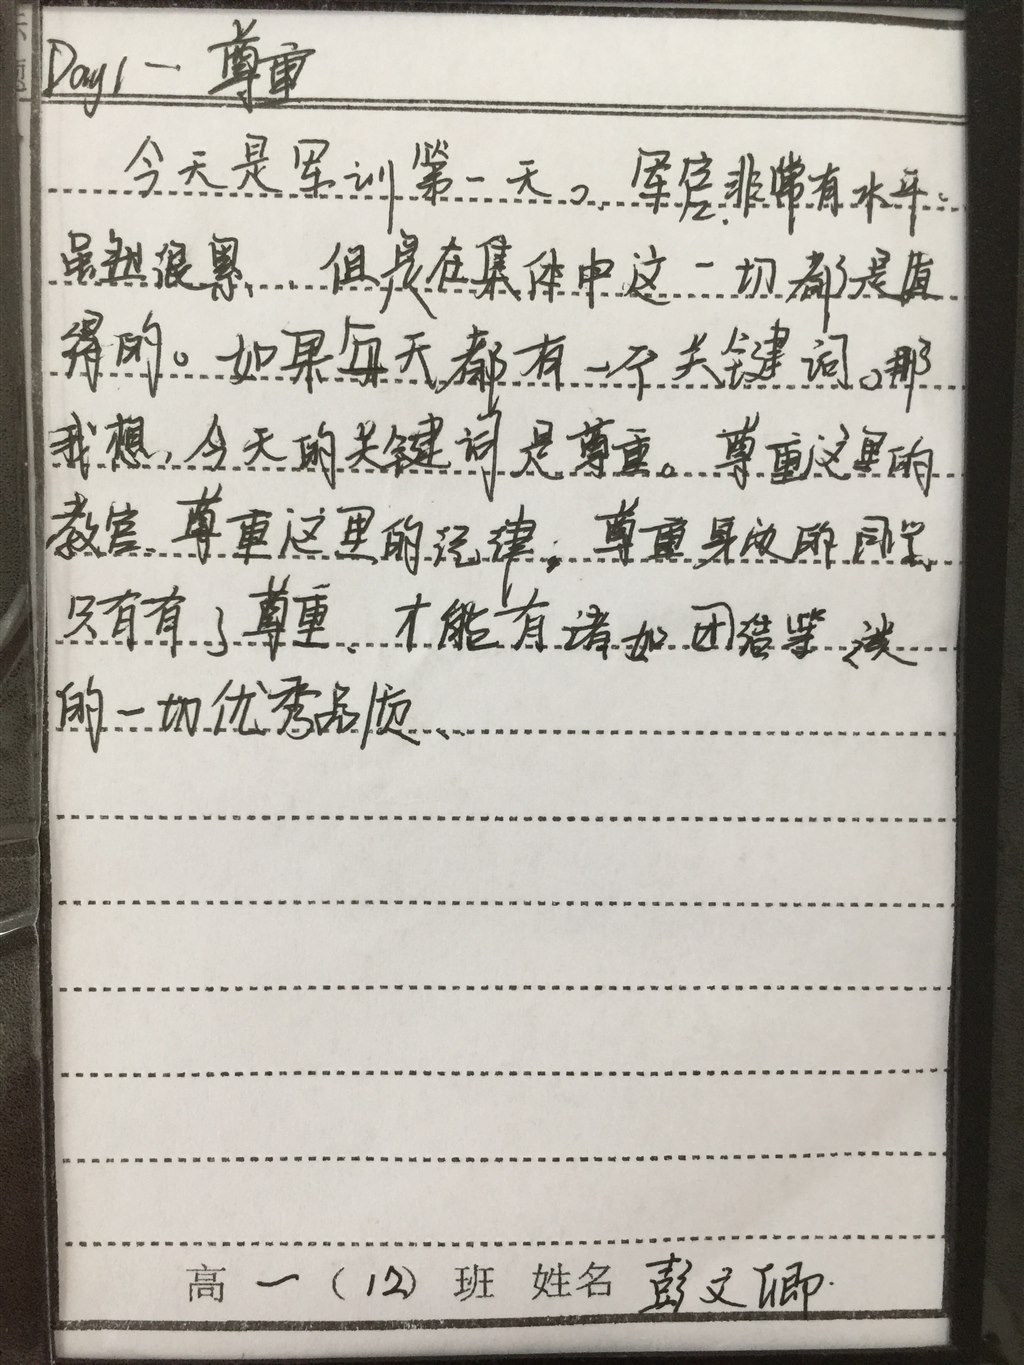 Day 1 一 尊重
今天是军训第一天。军官非常有水平。
虽然很累、但是在集体中这一切都是值
得的。如果每天都有一个关键词。那
我想,今天的关键词是尊重。尊重这里的
教官、尊重这里的纪律,尊重身边的同学、
只有有了尊重、才能有诸如团结
的一切优秀品质、
高一(12)班 姓名 彭文卿.